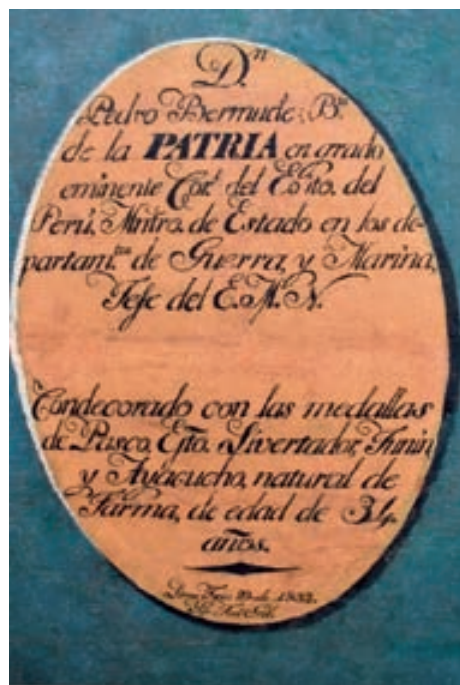 D.ⁿ
Pedro Bermude, B.º
de la PATRIA en grado
eminente Cor.l del Ex.ito. del
Perú. Mntro. de Estado en los de-
partam.tos de Guerra, y Marina,
Jefe del E.M.N.
Condecorado con las medallas
de Pasco, Ejto. Livertador, Junin,
y Ayacucho, natural de
Tarma, de edad de 34
años.
Lima de 1832.